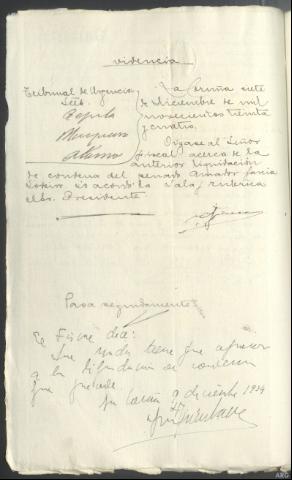 videncia
Tribunal de Urgencia
Sres.
La Coruña siete
de diciembre de mil
novecientos treinta
y cuatro.
Oigase al Señor
Fiscal acerca de la
anterior liquidación
de condena del penado Amador
lo acordó la Sala, rubrica
el Sr. Presidente
Pasa seguidamente
El Fiscal dice:
Que nada tiene que oponer
a la liquidación de condena
que precede.
La Coruña 9 diciembre 1934
ARG